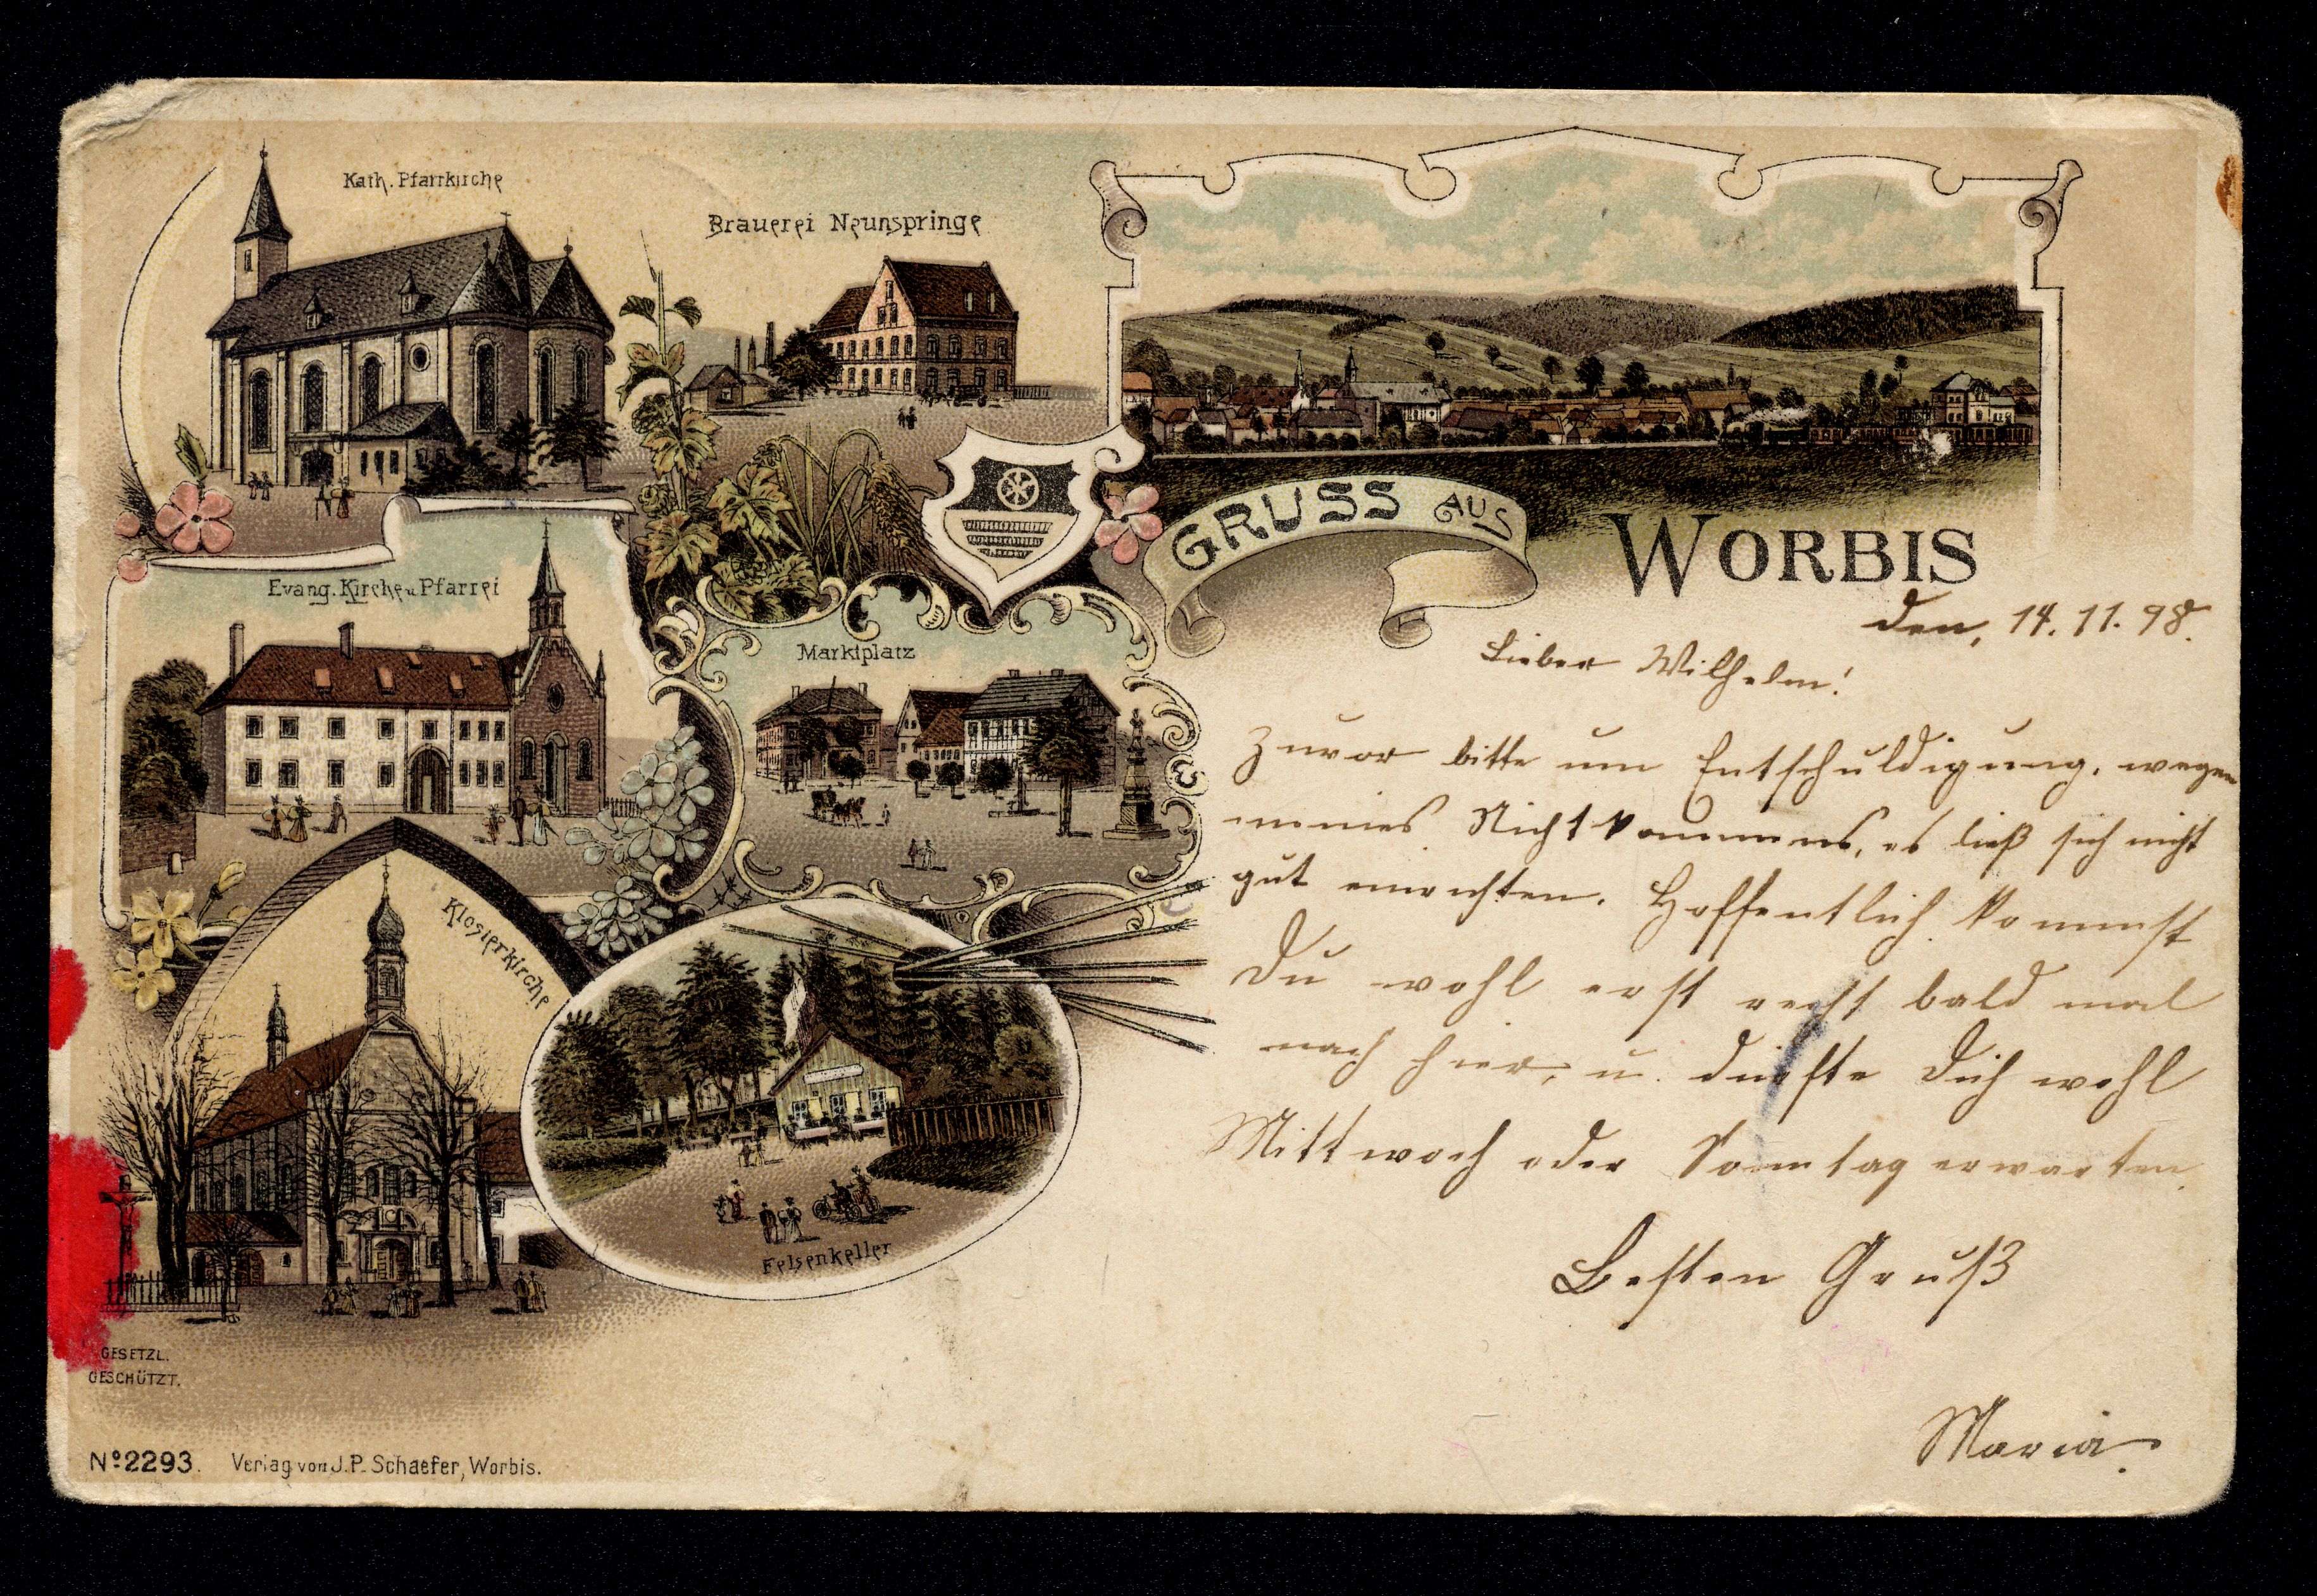 Kath. Pfarrkirche
Brauerei Neunspringe
GRUSS AUS
WORBIS
Evang. Kirche u. Pfarrei
Marktplatz
Klosterkirche
Felsenkeller
GESETZL.
GESCHÜTZT.
No 2293. Verlag von J. P. Schaefer, Worbis.
den, 14. 11. 98.
Lieber Wilhelm!
Zuvor bitte um Entschuldigung, wegen
meines Nichtkommens, es ließ sich nicht
gut einrichten. Hoffentlich kommst
Du wohl erst recht bald mal
nach hier, u. dürfte Dich wohl
Mittwoch oder Sonntag erwarten.
Besten Gruß
Maria.